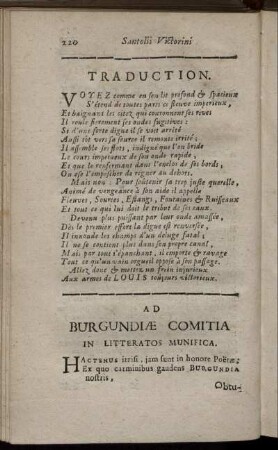 220 Santolii Victorini
TRADUCTION.
VOYEZ comme en son lit profond & spatieux
S'étend de toutes parts ce fleuve imperieux,
Et baignant les citez qui couronnent ses rives
Il roule fierement ses ondes fugitives :
Si d'une forte digue il se voit arrêté
Aussi tôt vers sa source il remonte irrité ;
Il assemble ses flots, indigné que l'on bride
Le cours impetueux de son onde rapide,
Et que le renfermant dans l'enclos de ses bords,
On ose l'empêcher de regner au dehors.
Mais non : Pour soûtenir sa trop juste querelle,
Animé de vengeance à son aide il appelle
Fleuves, Sources, Estangs, Fontaines & Ruisseaux
Et tout ce qui lui doit le tribut de ses eaux.
Devenu plus puissant par leur onde amassée,
Dés le premier effort la digue est renversée,
Il inonde les champs d'un deluge fatal ;
Il ne se contient plus dans son propre canal,
Mais par tout s'épanchant, il emporte & ravage
Tout ce qu'un vain orgueil oppose à son passage.
Allez donc & mettez un frein injurieux
Aux armes de LOUIS toûjours victorieux.
AD
BURGUNDIÆ COMITIA
IN LITTERATOS MUNIFICA.
HACTENUS irrisi, jam sunt in honore Poëtæ;
Ex quo carminibus gaudens BURGUNDIA
nostris,
Obtu-